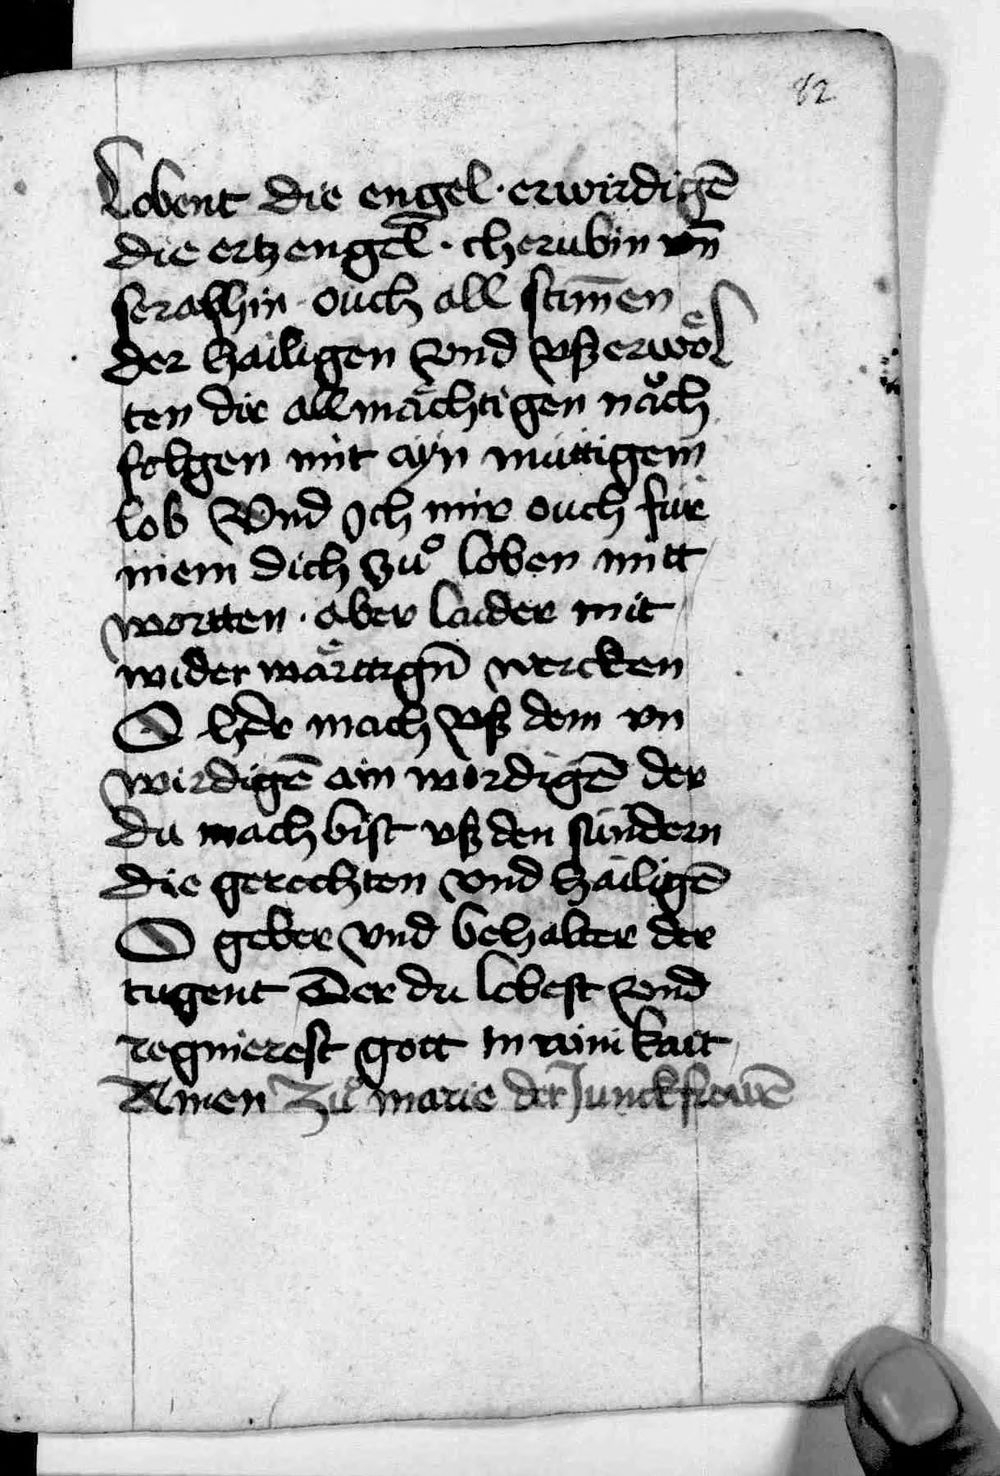 82
Lobent die engel · erwirdigē
die ertzengel̄ · cherubin vn̄
seraphin · ouch all stim̄en
der hailigen vnd vßerwoͤl
ten die allmaͤchtigen nāch
folgen mit ayn müttigem
lob Vnd Ich mir ouch für
niem dich zuͦ loben mitt
wortten · aber laider mit
wider waͤrttign̄ wercken
O h̄r mach vß dem vn
wirdigē ain wirdigē der
du mach bist vß den sündern
die gerechten vnd hailigē
O geber vnd behalter der
tugent Der du lebest vnd
regnierest gott In ainikait
Amen Zuͦ marie der Junckfrowē